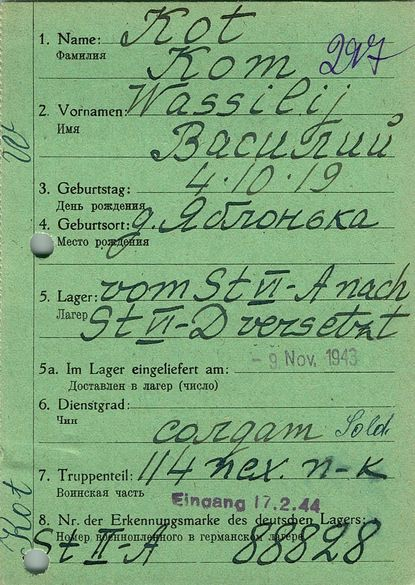 1. Name: Kot
Фамилия Кот 297
2. Vornamen: Wassilij
Имя
Василий
3. Geburtstag: 4.10.19
День рождения
4. Geburtsort: д. Яблонька
Место рождения
5. Lager: vom St VI-A nach
Лагер St VI-D versetzt
- 9 Nov. 1943
5a. Im Lager eingeliefert am:
Доставлен в лагер (число)
6. Dienstgrad:
Чин
солдат Sold.
7. Truppenteil: 114 пех. п-к
Воинская часть
Eingang 17.2.44
8. Nr. der Erkennungsmarke des deutschen Lagers:
Номер военнопленного в германском лагере
St II-A 88828
W
Kot